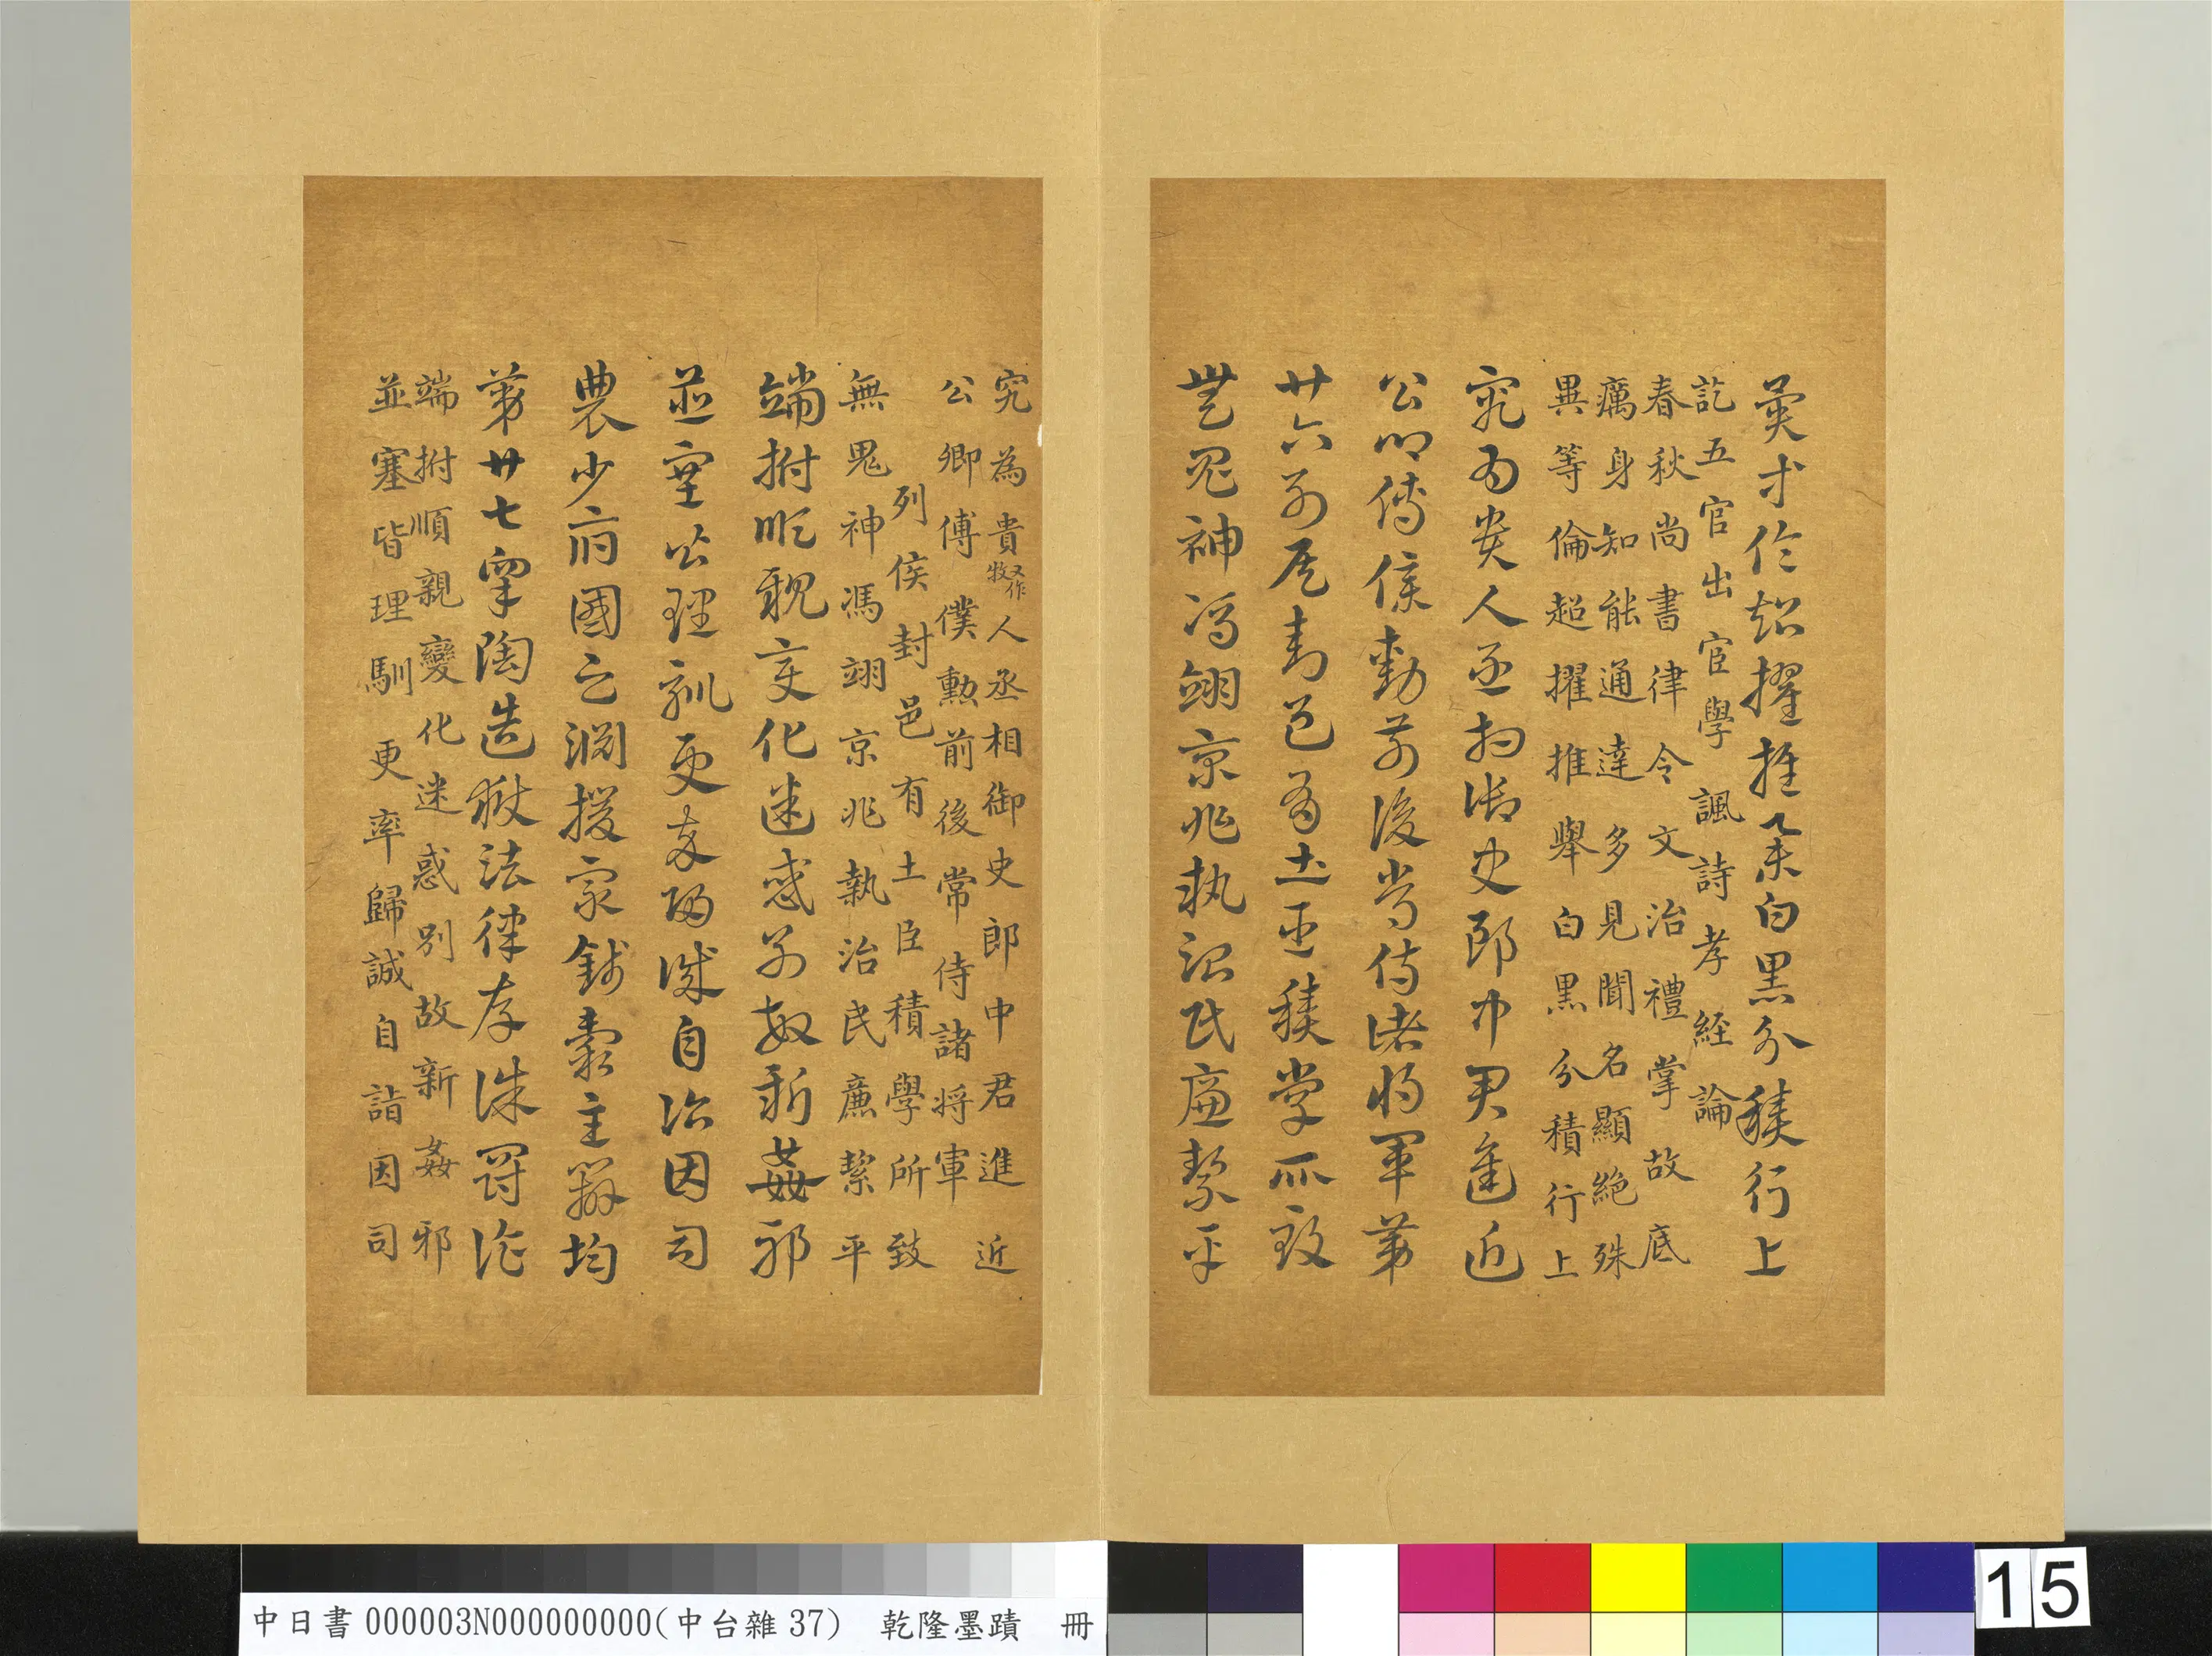 異等倫超擢推舉白黑分積行上
訖五官出宦學諷詩孝經論
春秋尚書律令文治禮掌故底
癘身知能通達多見聞名顯絕殊
異等倫超擢推舉白黑分積行上
究為貴人丞相御史郎中君進近
公卿傅僕勳前後常侍諸將軍第
廿六列侯封邑有土臣積學所致
無鬼神馮翊京兆執治民廉絜平
究為貴又作牧人丞相御史郎中君進近
公卿傅僕勳前後常侍諸將軍
列侯封邑有土臣積學所致
無鬼神馮翊京兆執治民廉絜平
端拊順親變化迷惑別故新姦邪
並塞皆理馴更率歸誠自詣因司
農少府國之淵援眾錢穀主辦均
第廿七皋陶造獄法律存誅罰詐
端拊順親變化迷惑別故新姦邪
並塞皆理馴更率歸誠自詣因司
中日書 000003N000000000(中台雜 37) 乾隆墨蹟 冊
15